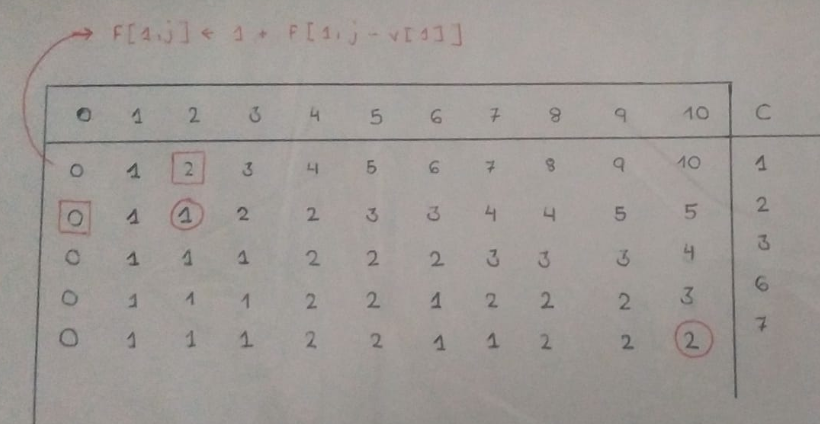 F[1,j] ← 1 + F[1, j - v[1]]
0 1 2 3 4 5 6 7 8 9 10 C
0 1 2 3 4 5 6 7 8 9 10 1
0 1 1 2 2 3 3 4 4 5 5 2
0 1 1 1 2 2 2 3 3 3 4 3
0 1 1 1 2 2 1 2 2 2 3 6
0 1 1 1 2 2 1 1 2 2 2 7